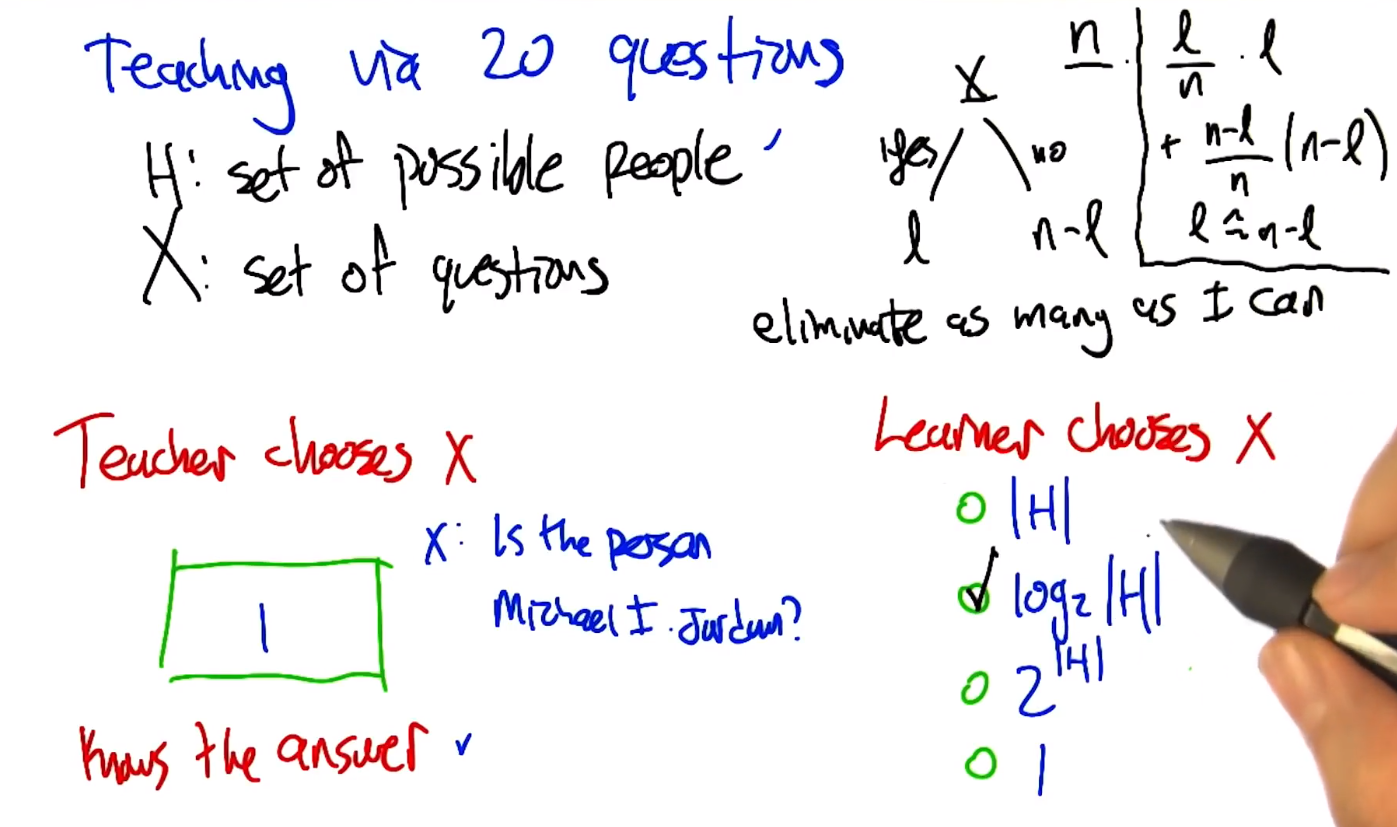 Teaching via 20 questions
H: set of possible people
X: set of questions
X
yes
no
l
n-l
n
l/n · l
+ n-l/n (n-l)
l ≈ n-l
eliminate as many as I can
Teacher chooses X
X: Is the person
Michael I. Jordan?
1
Knows the answer ✓
Learner chooses X
○ |H|
✓ log₂ |H|
○ 2^|H|
○ 1